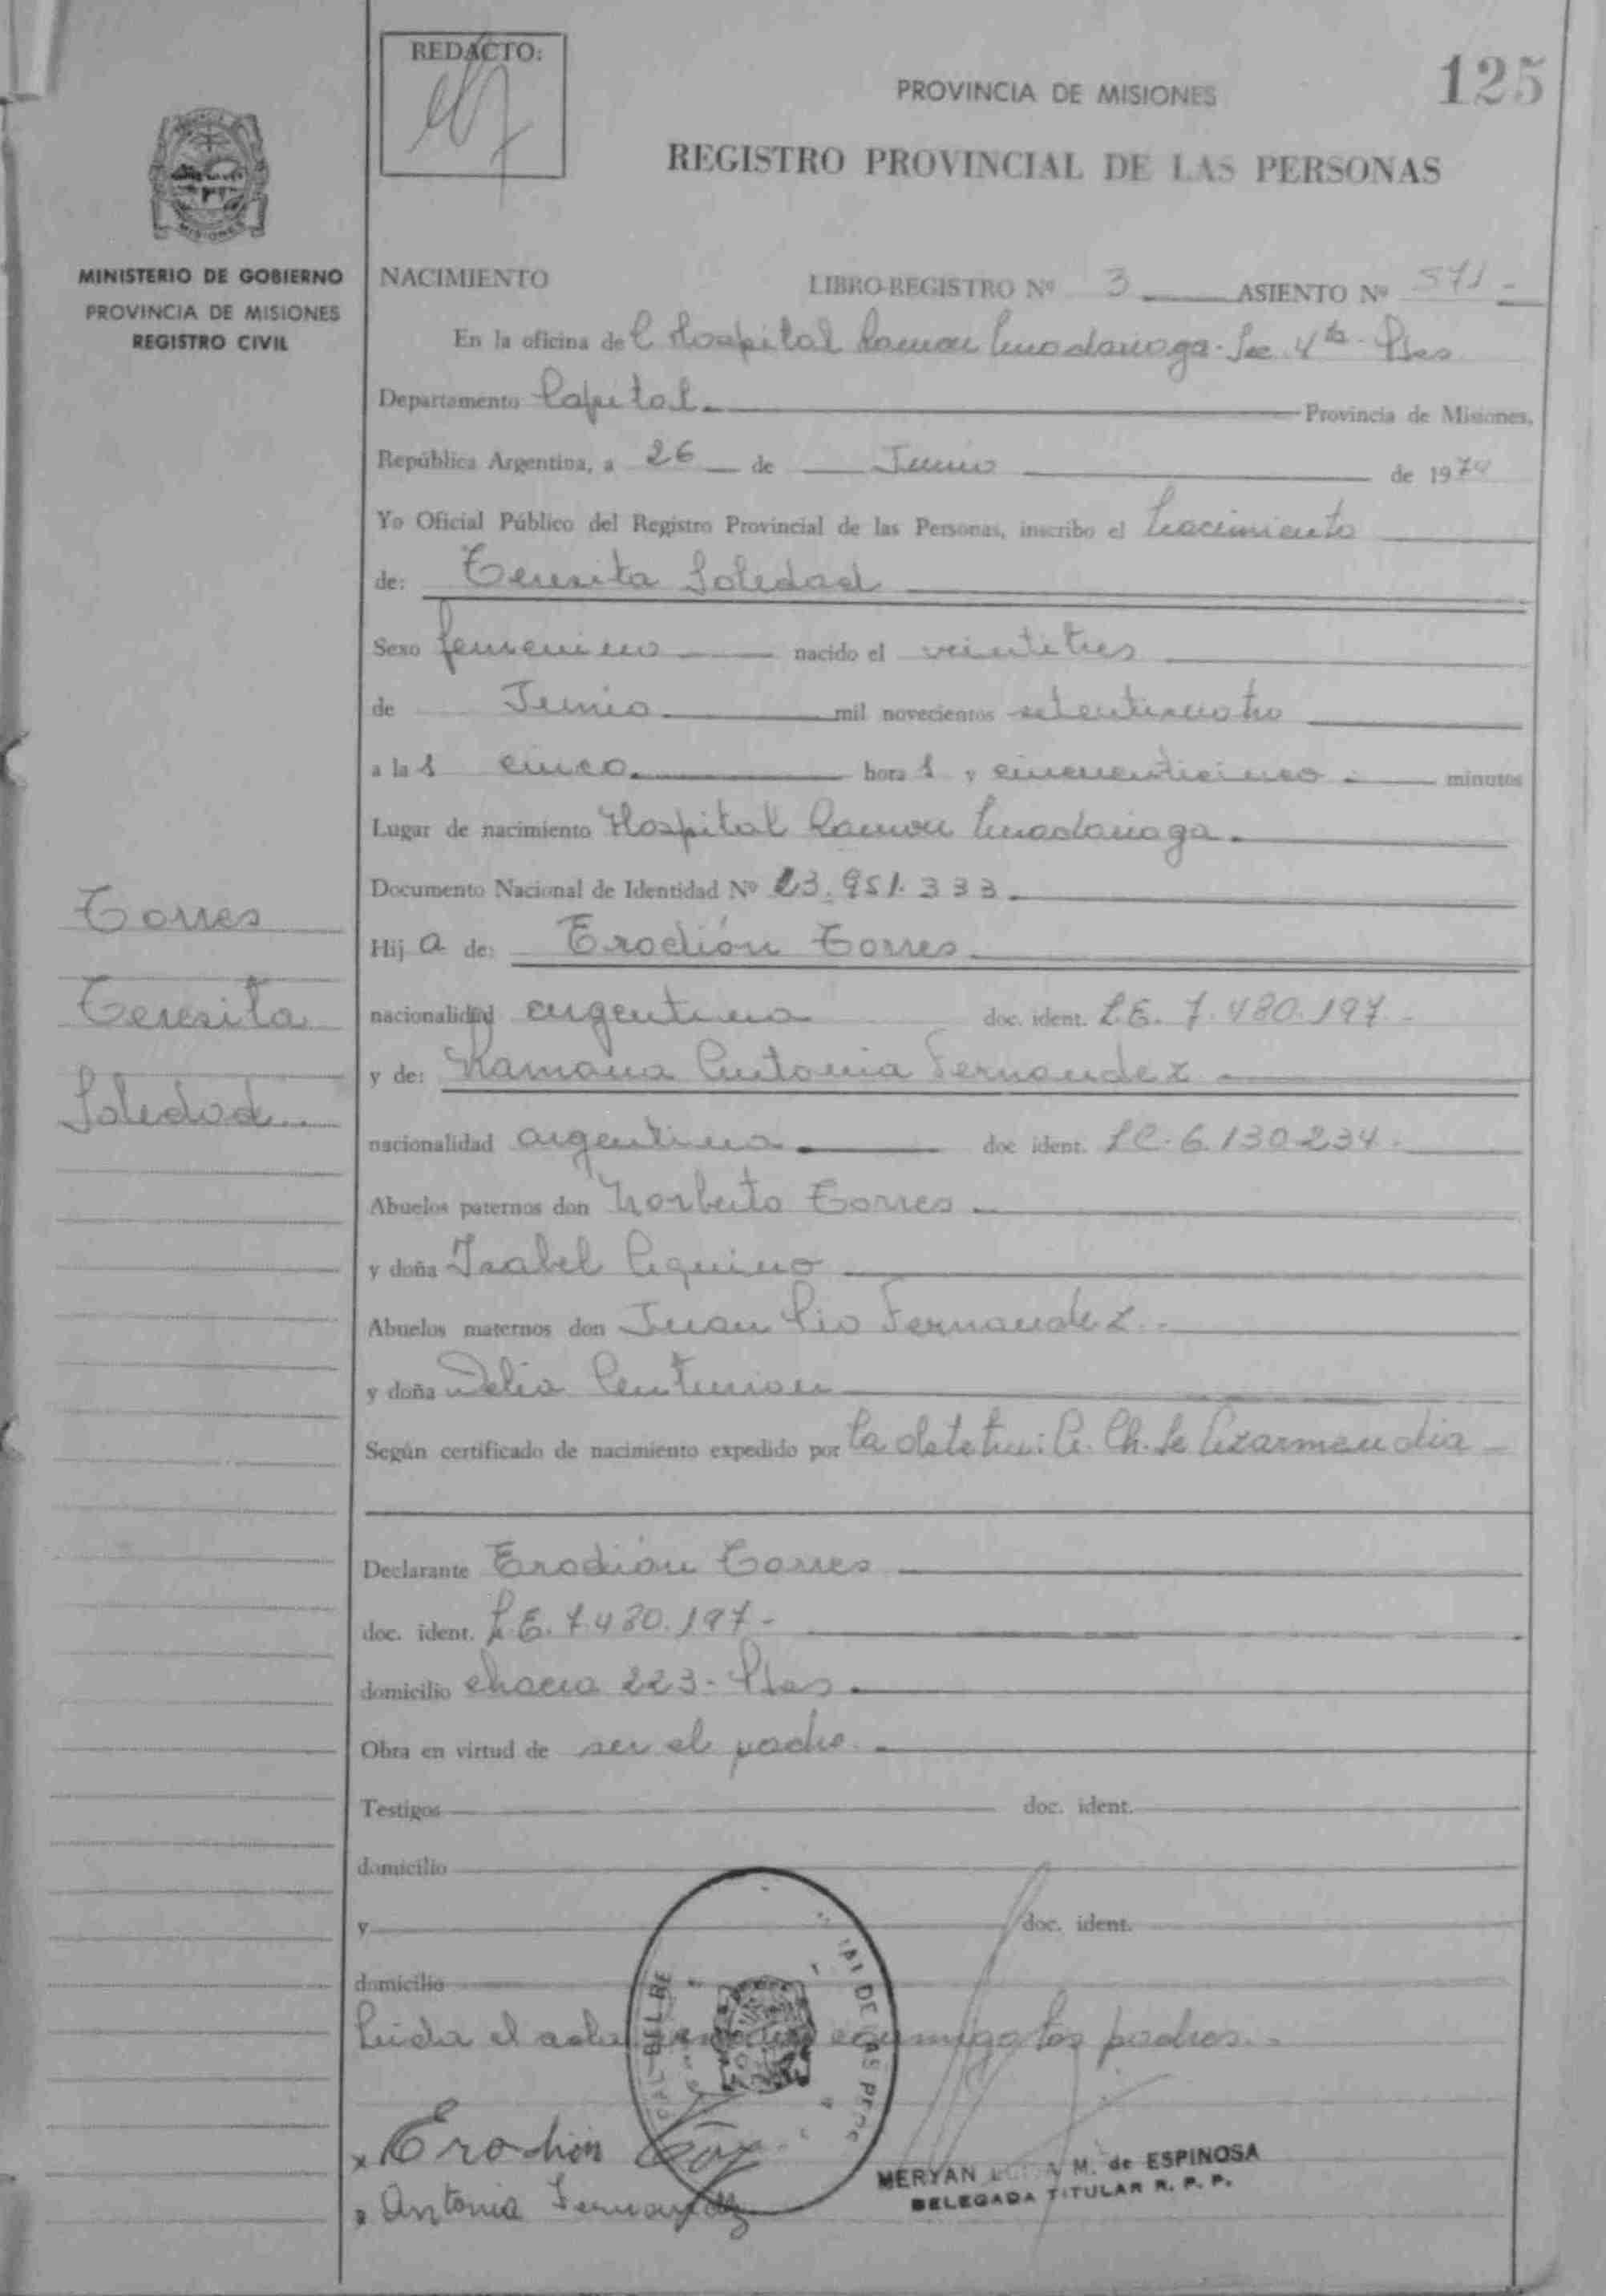 REDACTO:
125
PROVINCIA DE MISIONES
REGISTRO PROVINCIAL DE LAS PERSONAS
MISIONES
MINISTERIO DE GOBIERNO
PROVINCIA DE MISIONES
REGISTRO CIVIL
NACIMIENTO LIBRO-REGISTRO Nº 3 ASIENTO Nº 571 -
En la oficina del Hospital Ramon Madariaga - Sec 4ta - Pdas
Departamento Capital. Provincia de Misiones,
República Argentina, a 26 de Junio de 1974
Yo Oficial Público del Registro Provincial de las Personas, inscribo el Nacimiento
de: Teresita Soledad
Sexo femenino nacido el veintitres
de Junio mil novecientos setenticuatro
a las cinco. horas y cincuenticinco - minutos
Lugar de nacimiento Hospital Ramon Madariaga.
Documento Nacional de Identidad Nº 23.951.333
Torres
Teresita
Soledad
Hija de: Erodión Torres
nacionalidad argentina doc. ident. L.E. 7.480.197.-
y de: Ramona Antonia Fernandez
nacionalidad argentina doc ident. LC. 6.130.234.
Abuelos paternos don Norberto Torres
y doña Isabel Aquino
Abuelos maternos don Juan Pio Fernandez.-
y doña Delia Centurion
Según certificado de nacimiento expedido por la A. Ch. de Azarmendia -
Declarante Erodión Torres
doc. ident. L.E. 7.480.197-
domicilio chacra 223 - Pdas.
Obra en virtud de ser el padre.
Testigos doc. ident.
domicilio
y doc. ident.
domicilio
Leida el acta conmigo los padres.-
x Erodion Tor
x Antonia Fernandez
MERYAN M. de ESPINOSA
DELEGADA TITULAR R. P. P.